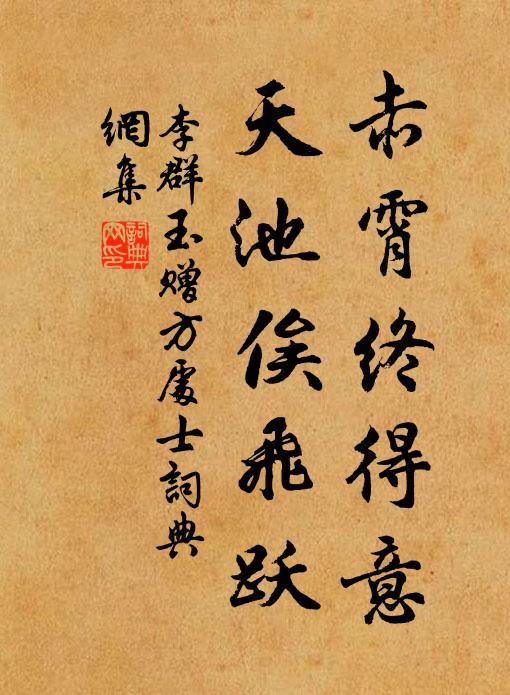 赤霄终得意
天池俟飛跃
李群玉赠方處士詞典
網集
詞典
网印